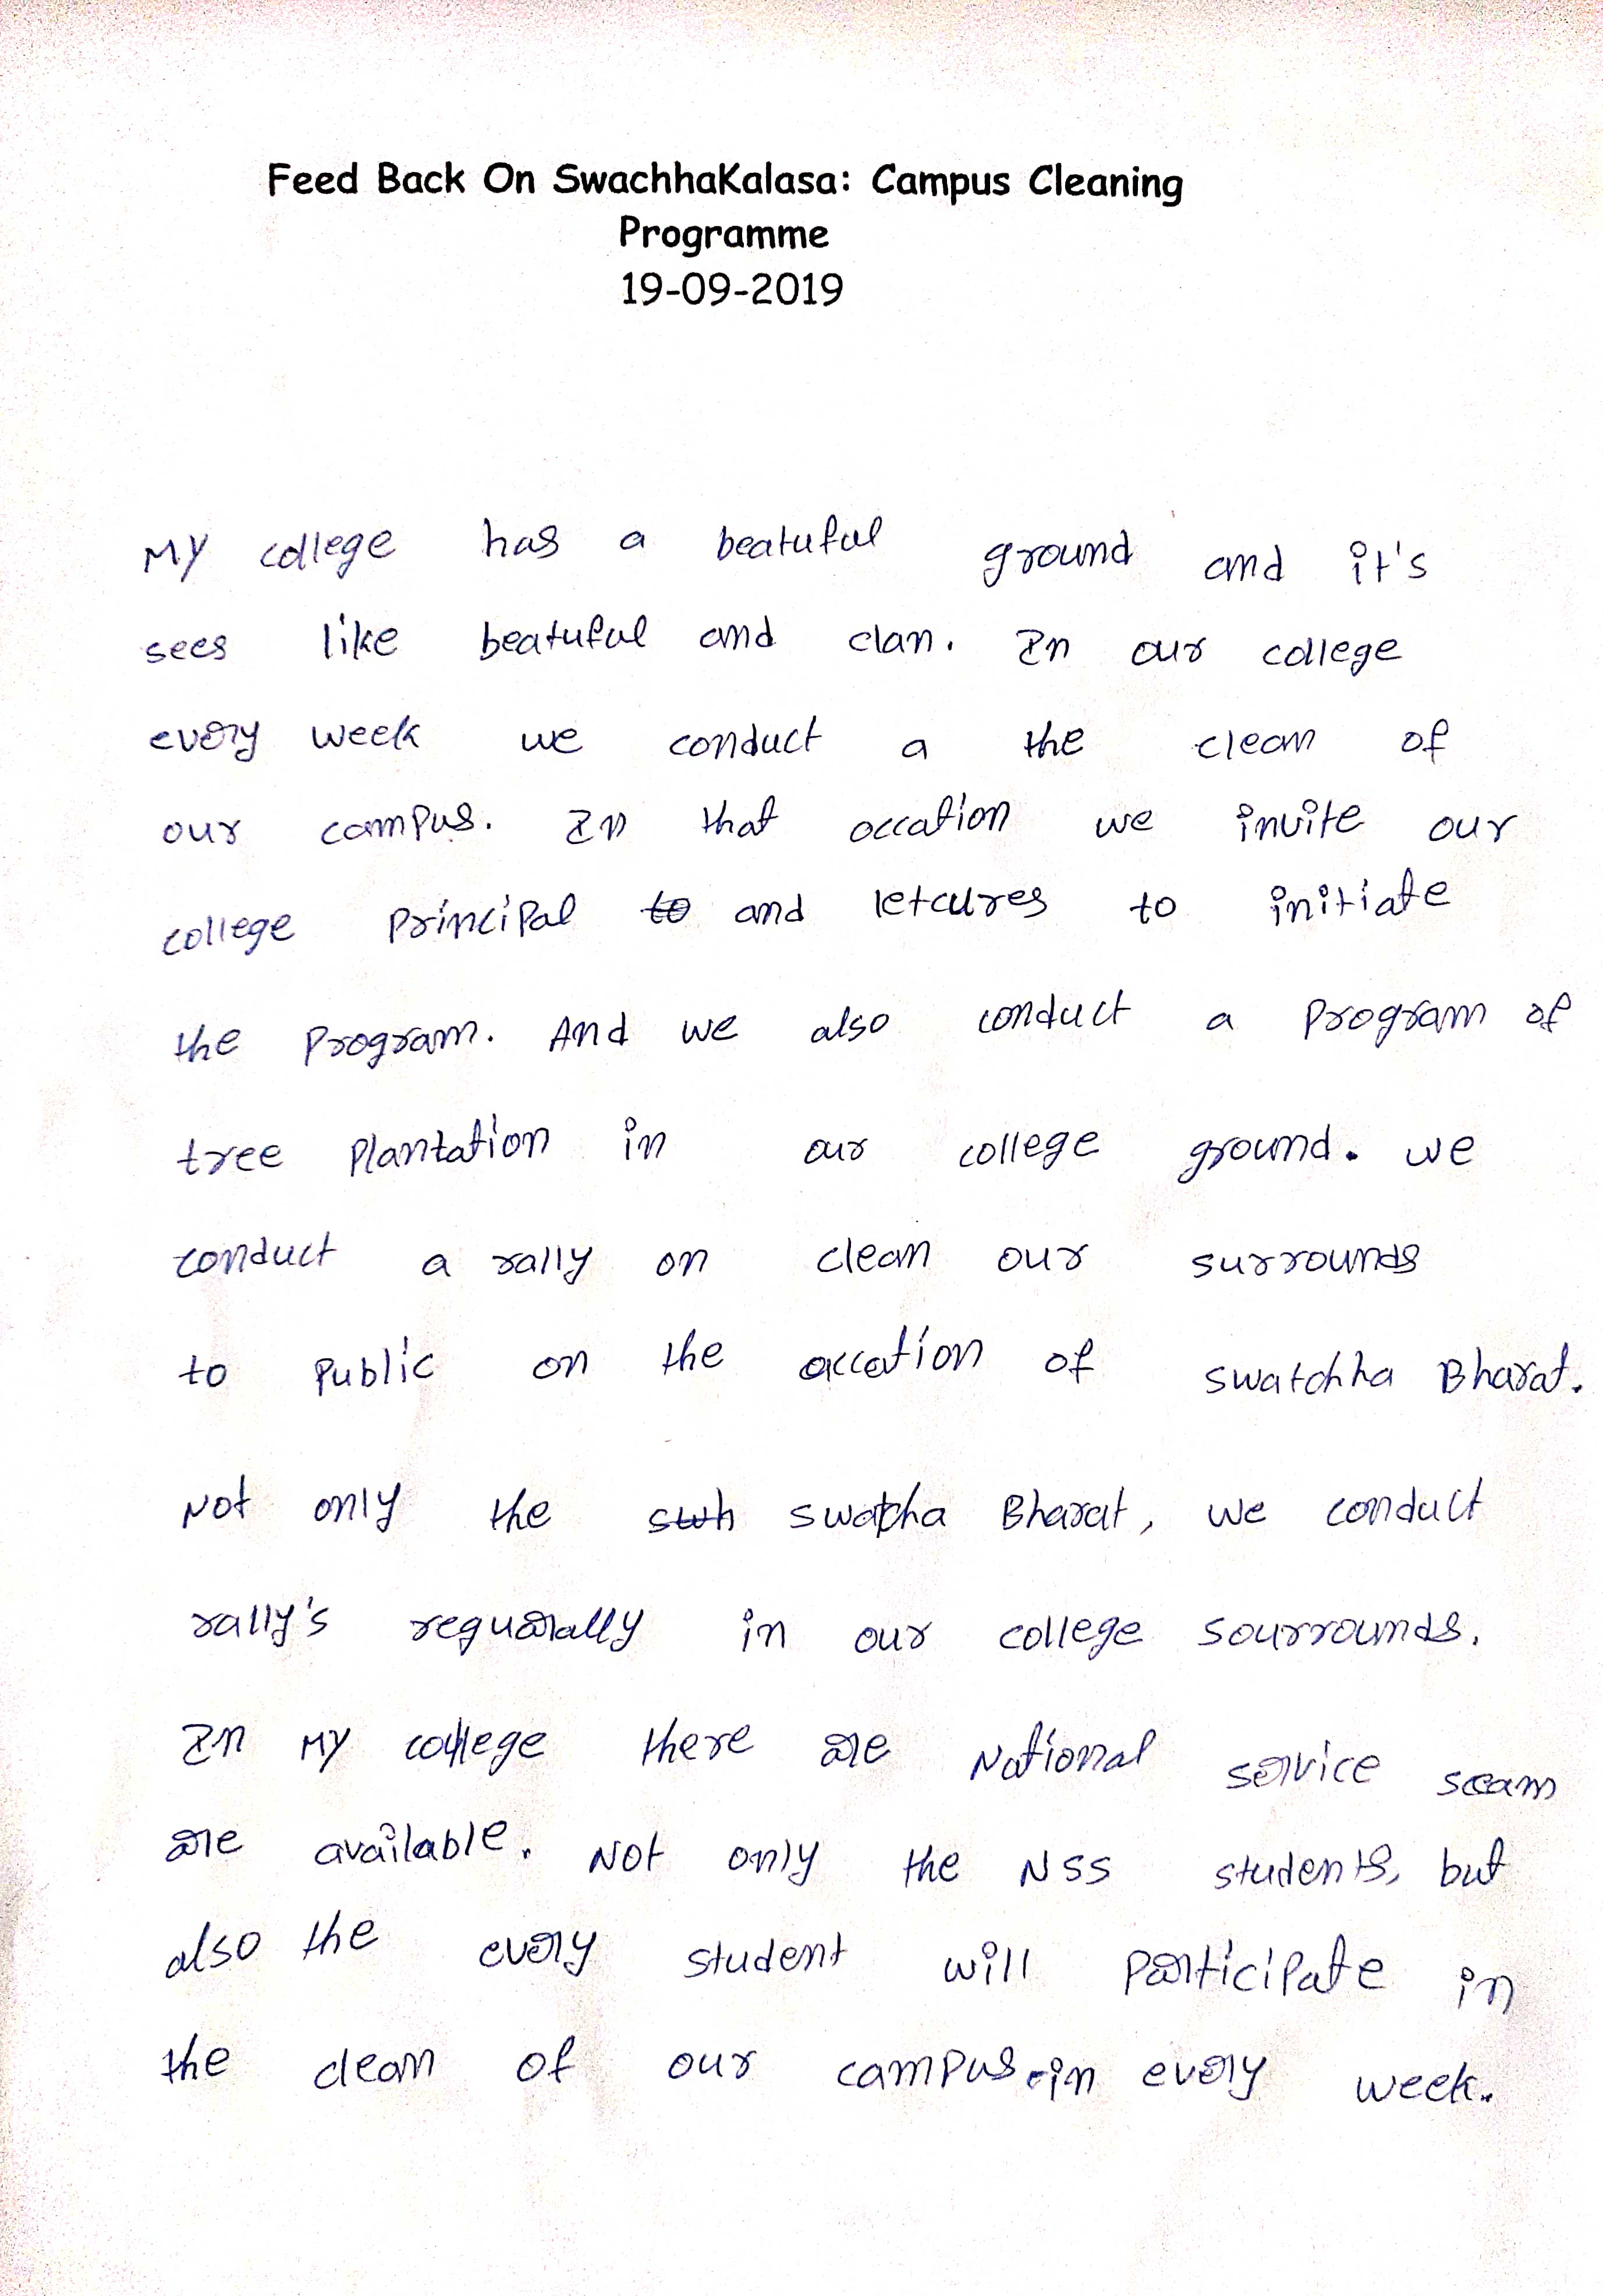 Feed Back On SwachhaKalasa: Campus Cleaning
Programme
19-09-2019
My college has a beatuful ground and it's
sees like beatuful and clan. In our college
every week we conduct a the clean of
our campus. In that occation we invite our
college principal to and letcures to initiate
the program. And we also conduct a program of
tree plantation in our college ground. we
conduct a rally on clean our surrounds
to public on the occation of swatchha Bharat.
Not only the swh swatcha Bharat, we conduct
rally's regularally in our college sourrounds.
In My college there are National service scam
are available. Not only the NSS students, but
also the every student will participate in
the clean of our campus in every week.